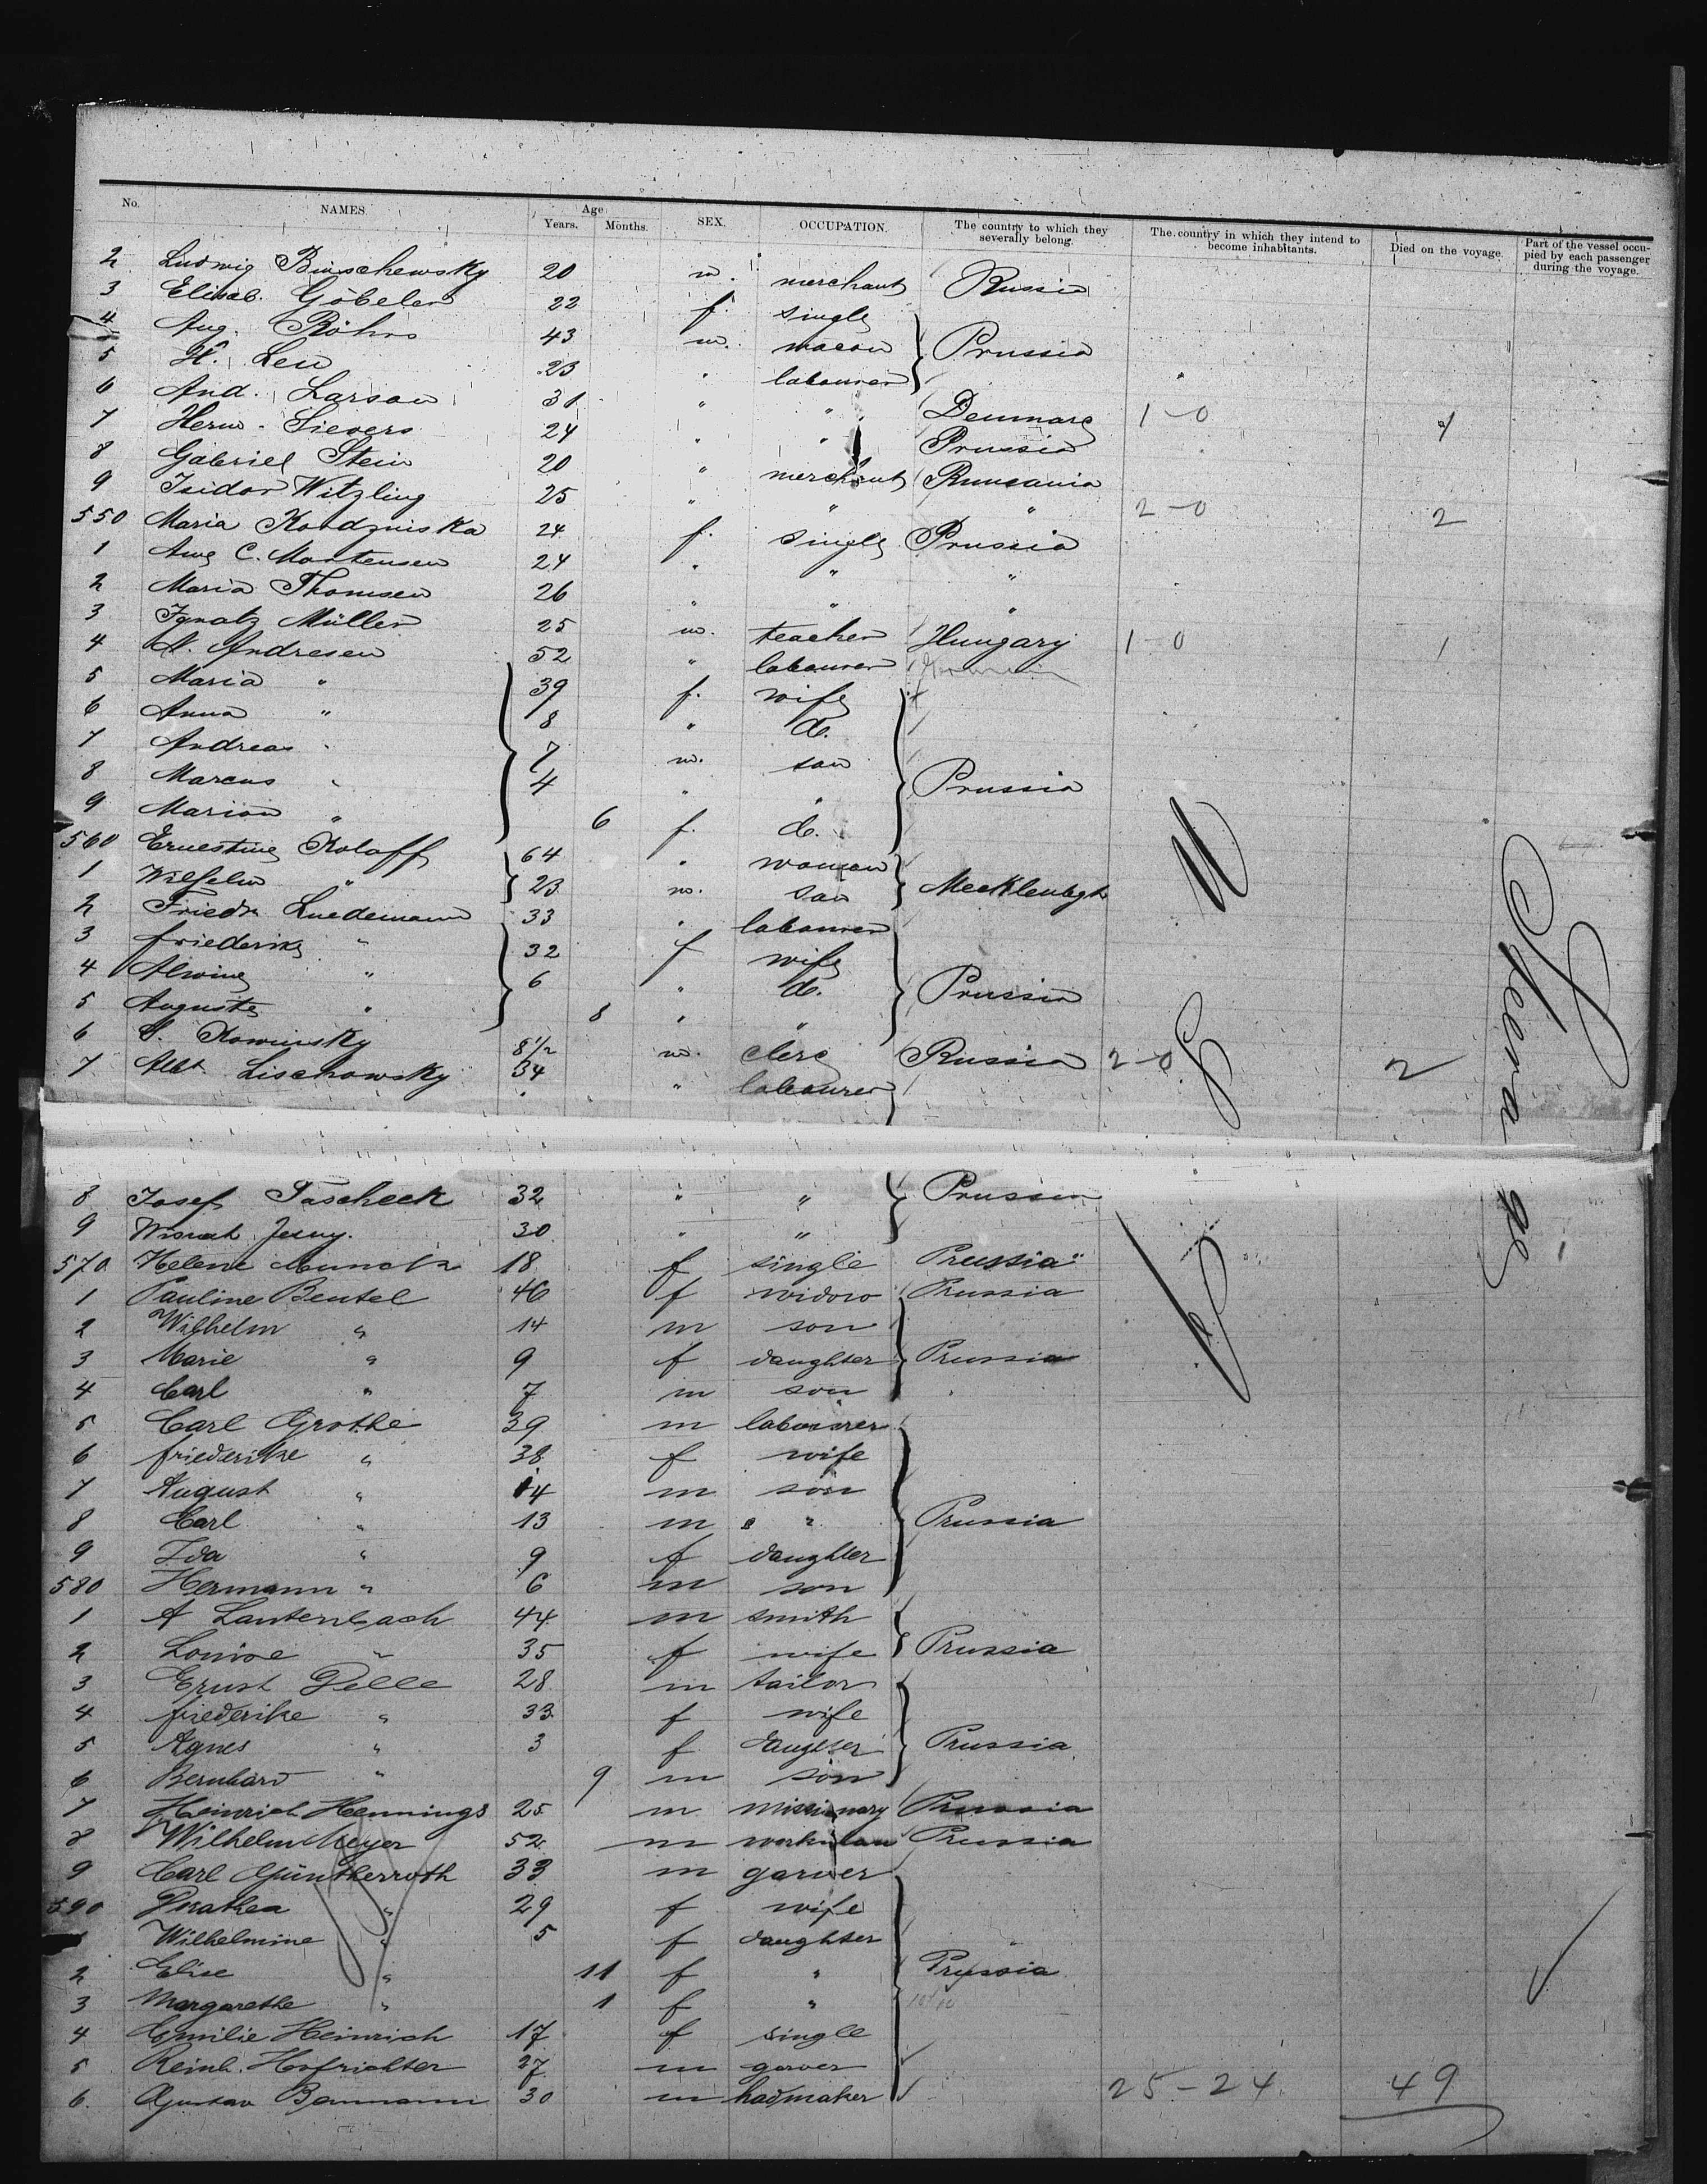 No. NAMES. Age. Years. Months. SEX. OCCUPATION. The country to which they severally belong. The country in which they intend to become inhabitants. Died on the voyage. Part of the vessel occupied by each passenger during the voyage.
2 Ludwig 20 m. merchant Russia
3 Elisab. Göbeler 22 f. single
4 Aug. Röhrs 43 m. mason Prussia
5 H. Leu 23 " labourer
6 And. Larson 31 " " Denmark 1-0 1
7 Herm. Sievers 24 " " Prussia
8 Gabriel Stein 20 " merchant Rumania
9 Isidor Witzling 25 " " " 2-0 2
550 Maria 24 f. single Prussia
1 C. Mortensen 24 " " "
2 Maria Thomsen 26 " " "
3 Ignatz Müller 25 m. teacher Hungary 1-0 1
4 Andresen 52 " labourer
5 Maria " 39 f. wife
6 Anna " 8 " d.
7 Andreas " 7 m. son
8 Marcus " 4 " " Prussia
9 Marion " 6 f. d.
560 Ernestine 64 " woman
1 Wilhelm " 23 m. son
2 Friedr. Luedemann 33 " labourer
3 friederike " 32 f wife
4 Alwine " 6 " d. Prussia
5 Auguste " 8 " "
6 8 1/2 m. clerc Russia 2-0 2
7 Albt. Lischowsky 34 " labourer
Steerage
8 Josef Tascheck 32 " " Prussia
9 30 " "
570 Helene 18 f single Prussia
1 Pauline Beutel 46 f widow Prussia
2 Wilhelm " 14 m son
3 Marie " 9 f daughter Prussia
4 Carl " 7 m son
5 Carl Grothe 39 m labourer
6 friederike " 38 f wife
7 August " 14 m son
8 Carl " 13 m " Prussia
9 Ida " 9 f daughter
580 Hermann " 6 m son
1 A Lauterbach 44 m smith
2 Louise " 35 f wife Prussia
3 Ernst 28 m tailor
4 friederike " 33 f wife
5 Agnes " 3 f Prussia
6 Bernhard " 9 m son
7 Heinrich Hennings 25 m missionary Prussia
8 Wilhelm Meyer 52 m workman Prussia
9 Carl Güntherroth 33 m garver
590 Dorathea " 29 f wife
Wilhelmine " 5 f daughter
2 Elise " 11 f " Prussia
3 Margarethe " 1 f "
4 Emilie Heinrich 17 f single
5 Reinh. Hofrichter 27 m garver
6. Gustav Baumann 30 m hadmaker 25-24 49